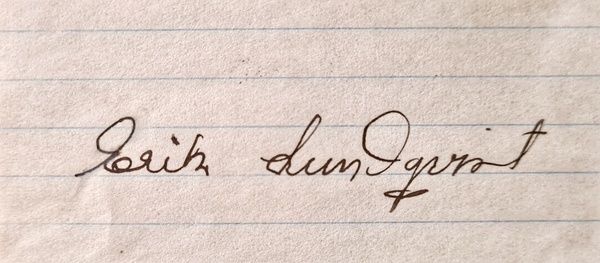 Erik Lundqvist